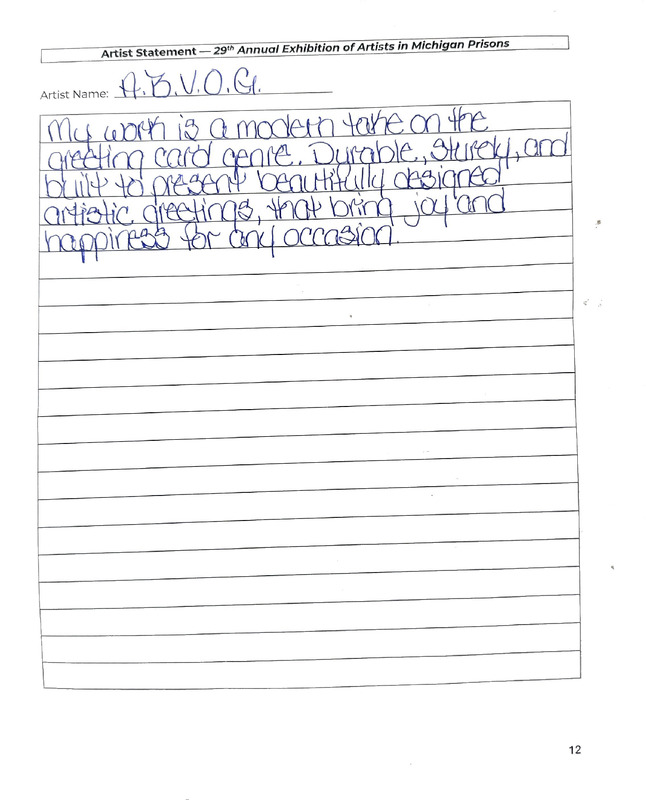 Artist Statement — 29th Annual Exhibition of Artists in Michigan Prisons
Artist Name: A.B.V.O.G.
My work is a modern take on the
greeting card genre. Durable, sturdy, and
built to present beautifully designed
artistic greetings, that bring joy and
happiness for any occasion.
12